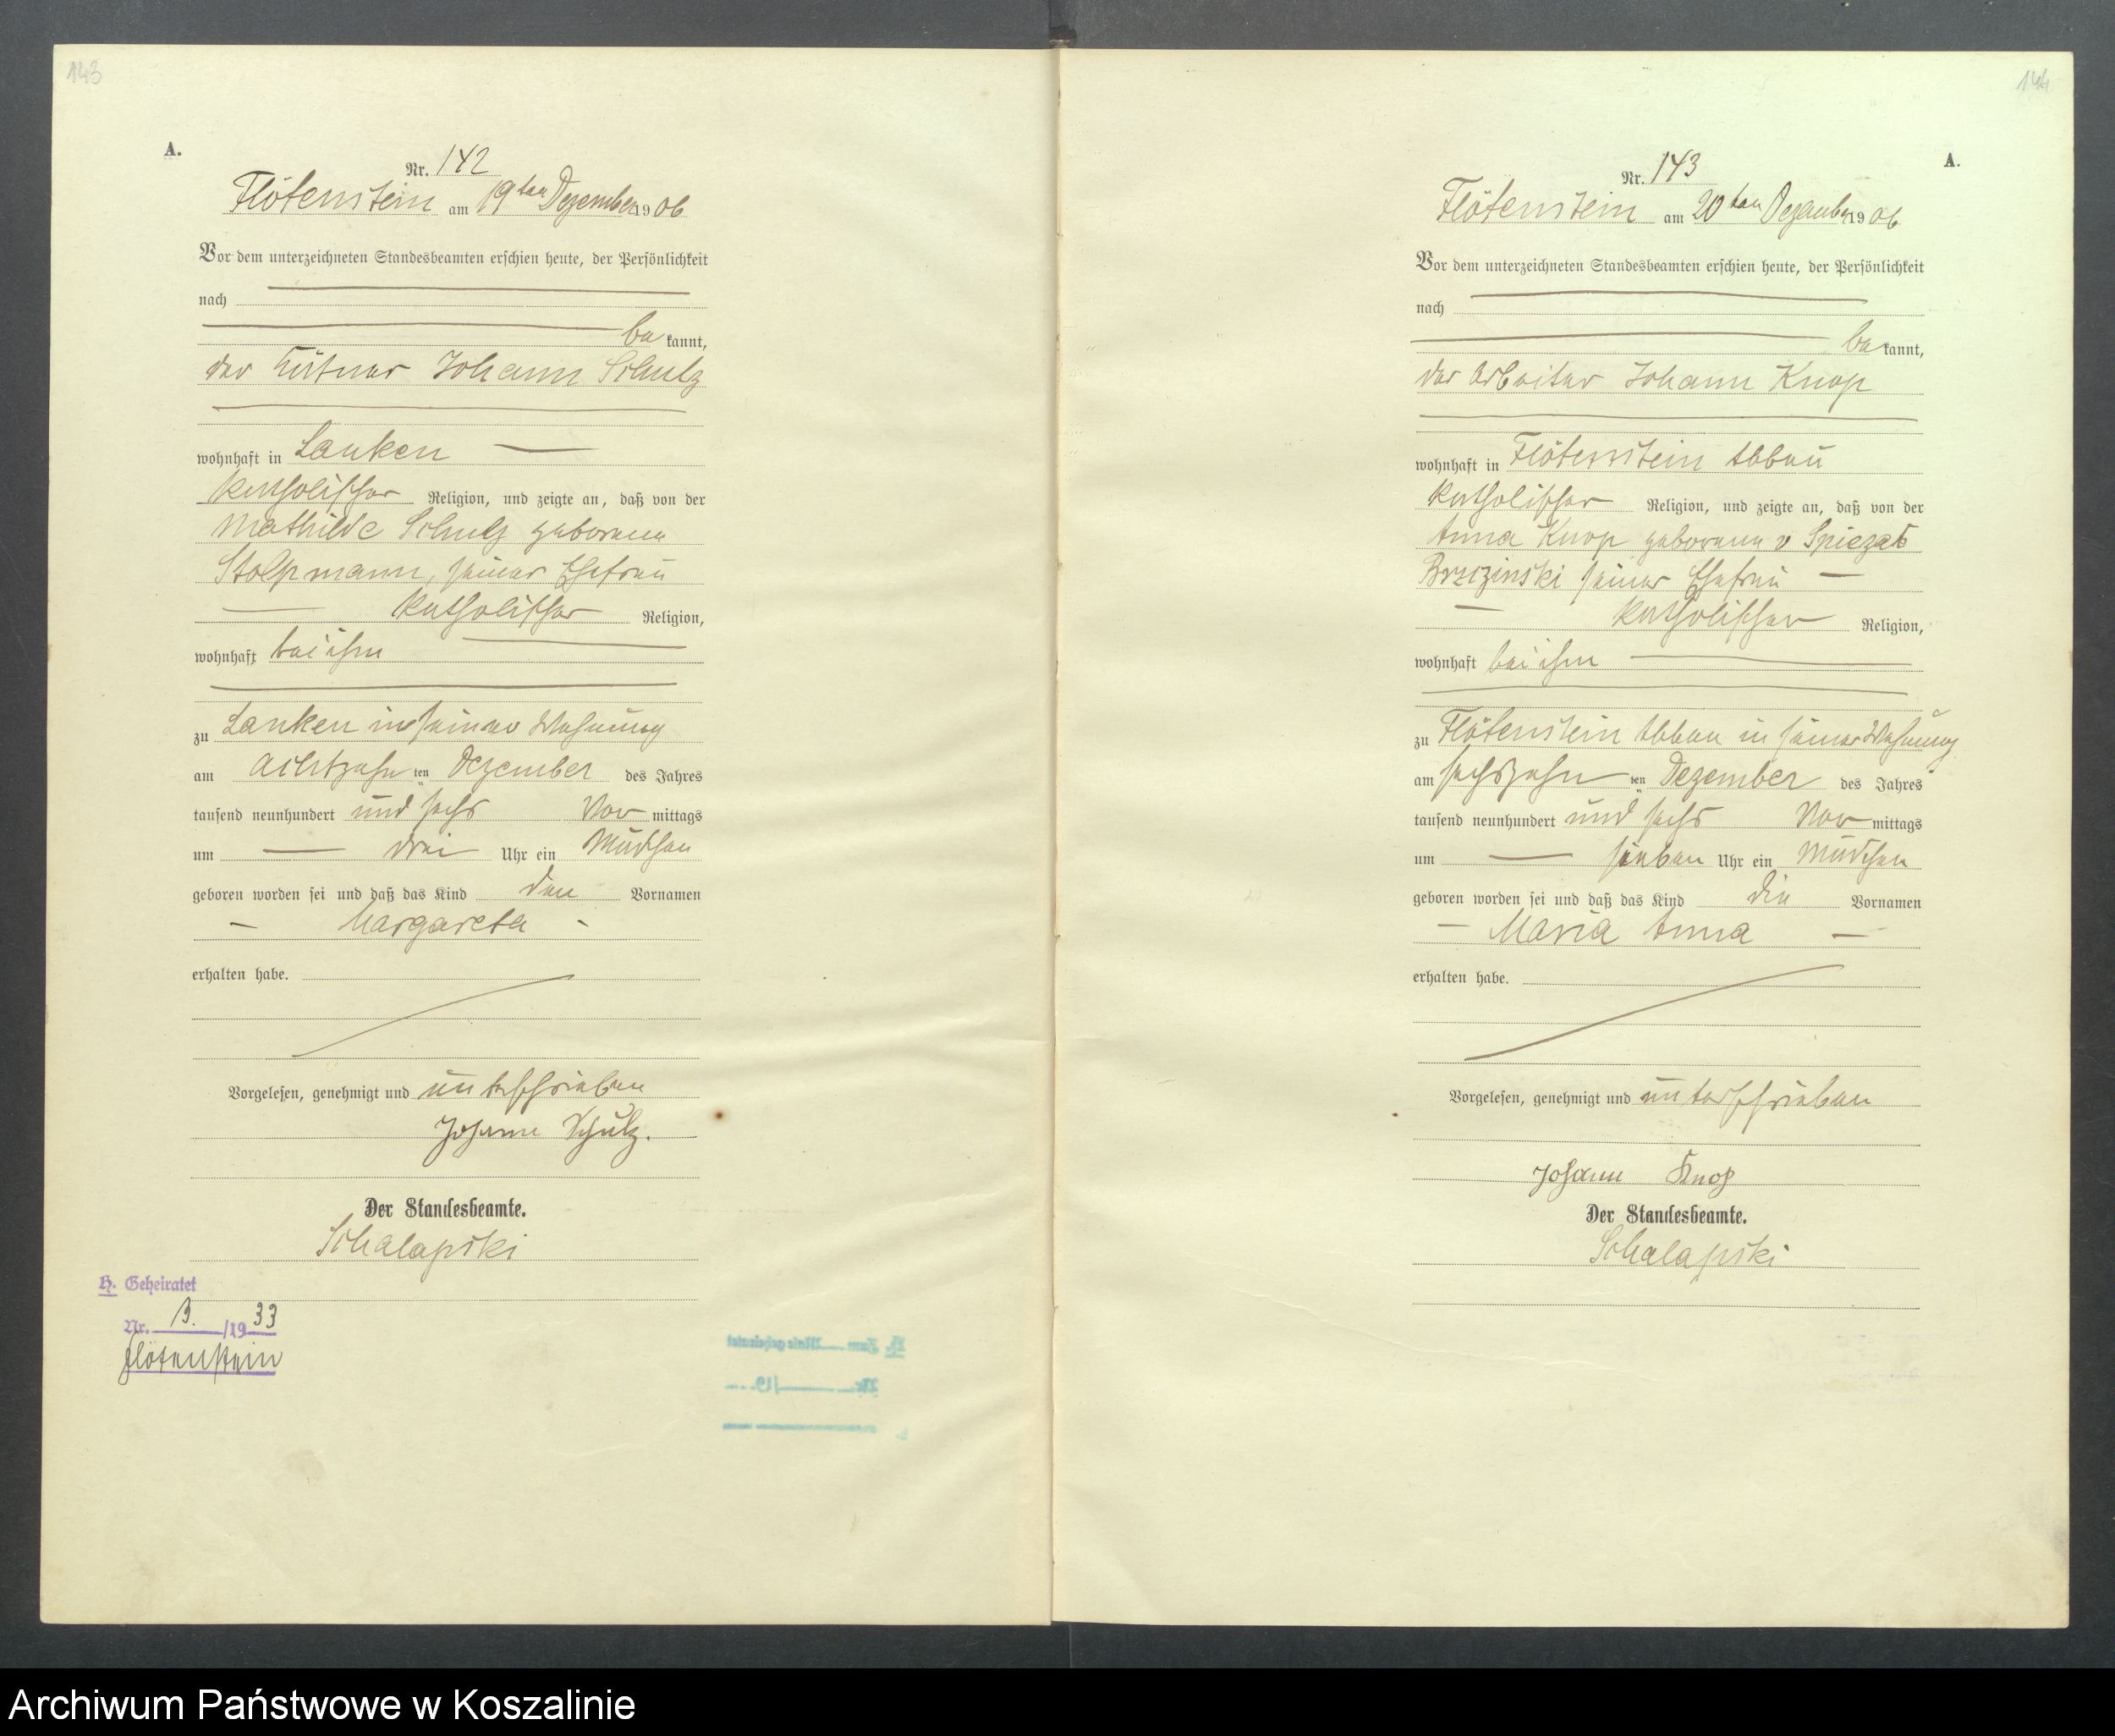 143
A.
Nr. 142
Flötenstein am 19ten Dezember 1906
Vor dem unterzeichneten Standesbeamten erschien heute, der Persönlichkeit
nach
be kannt,
der Kätner Johann Schulz
wohnhaft in Lanken
katholischer Religion, und zeigte an, daß von der
Mathilde Schulz geborene
Stolpmann, seiner Ehefrau
katholischer Religion,
wohnhaft bei ihm
zu Lanken in seiner Wohnung
am achtzehn ten Dezember des Jahres
tausend neunhundert und sechs Vor mittags
um drei Uhr ein Mädchen
geboren worden sei und daß das Kind den Vornamen
Margareta
erhalten habe.
Vorgelesen, genehmigt und unterschrieben
Johann Schulz.
Der Standesbeamte.
Schalapski
H. Geheiratet
Nr. 13. /1933
Flötenstein
144
A.
Nr. 143
Flötenstein am 20ten Dezember 1906
Vor dem unterzeichneten Standesbeamten erschien heute, der Persönlichkeit
nach
be kannt,
der Arbeiter Johann Knop
wohnhaft in Flötenstein Abbau
katholischer Religion, und zeigte an, daß von der
Anna Knop geborene v Spiczak
Brzezinski seiner Ehefrau
katholischer Religion,
wohnhaft bei ihm
zu Flötenstein Abbau in seiner Wohnung
am sechszehn ten Dezember des Jahres
tausend neunhundert und sechs Vor mittags
um sieben Uhr ein Mädchen
geboren worden sei und daß das Kind die Vornamen
Maria Anna
erhalten habe.
Vorgelesen, genehmigt und unterschrieben
Johann Knop
Der Standesbeamte.
Schalapski
Archiwum Państwowe w Koszalinie